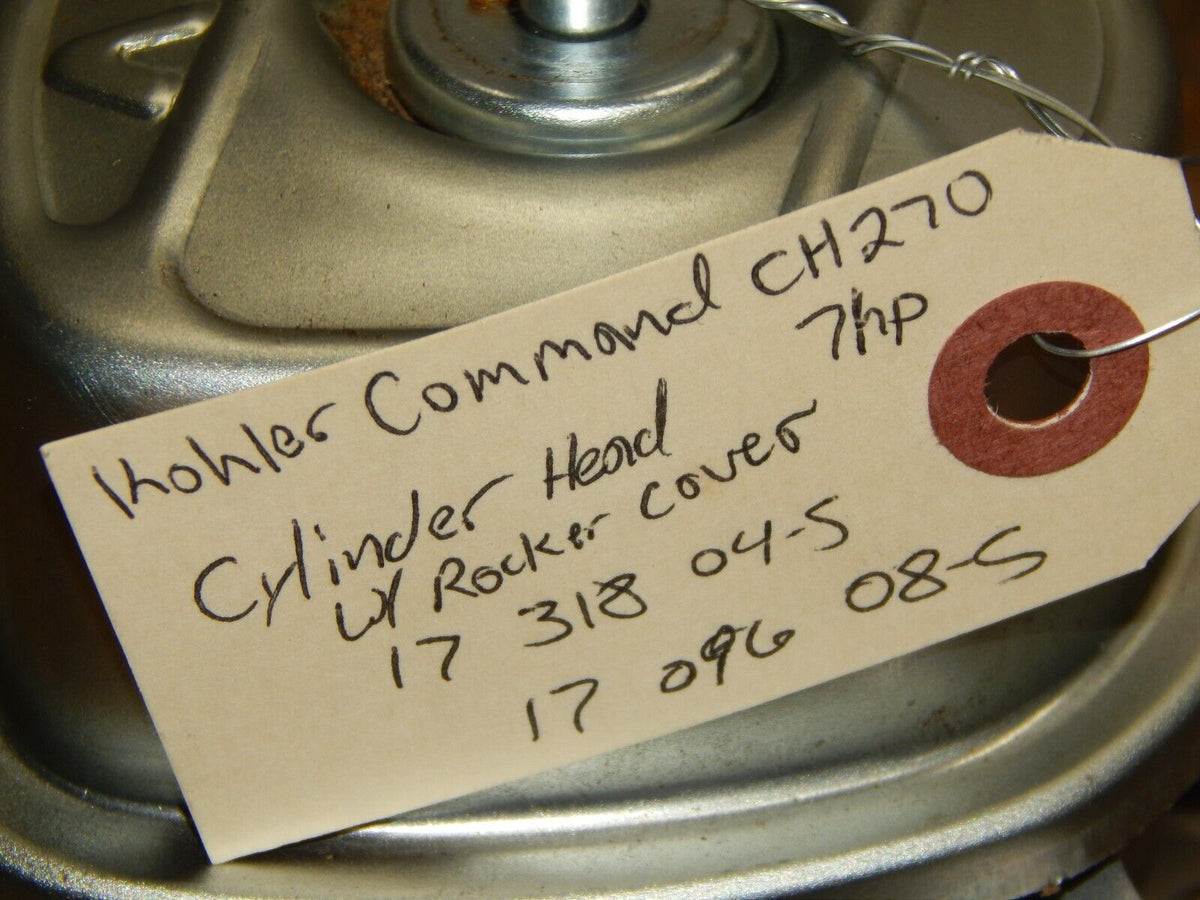 Kohler Command CH270
7hp
Cylinder Head
w/ Rocker Cover
17 318 04-S
17 096 08-S